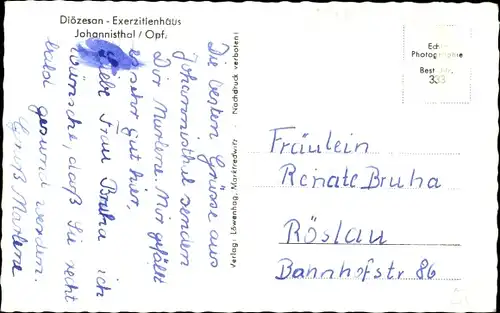 Diözesan - Exerzitienhaus
Johannisthal / Opf.
Die besten Grüsse aus
Johannisthal senden
Dir Marlene. Mir gefällt
es sehr gut hier.
Liebe Frau Bruha ich
wünsche, daß Sie recht
bald gesund werden.
Gruß Marlene
Verlag: Löwenhag, Marktredwitz · Nachdruck verboten!
Echte
Photographie
Best. Nr.
333
Fräulein
Renate Bruha
Röslau
Bahnhofstr 86